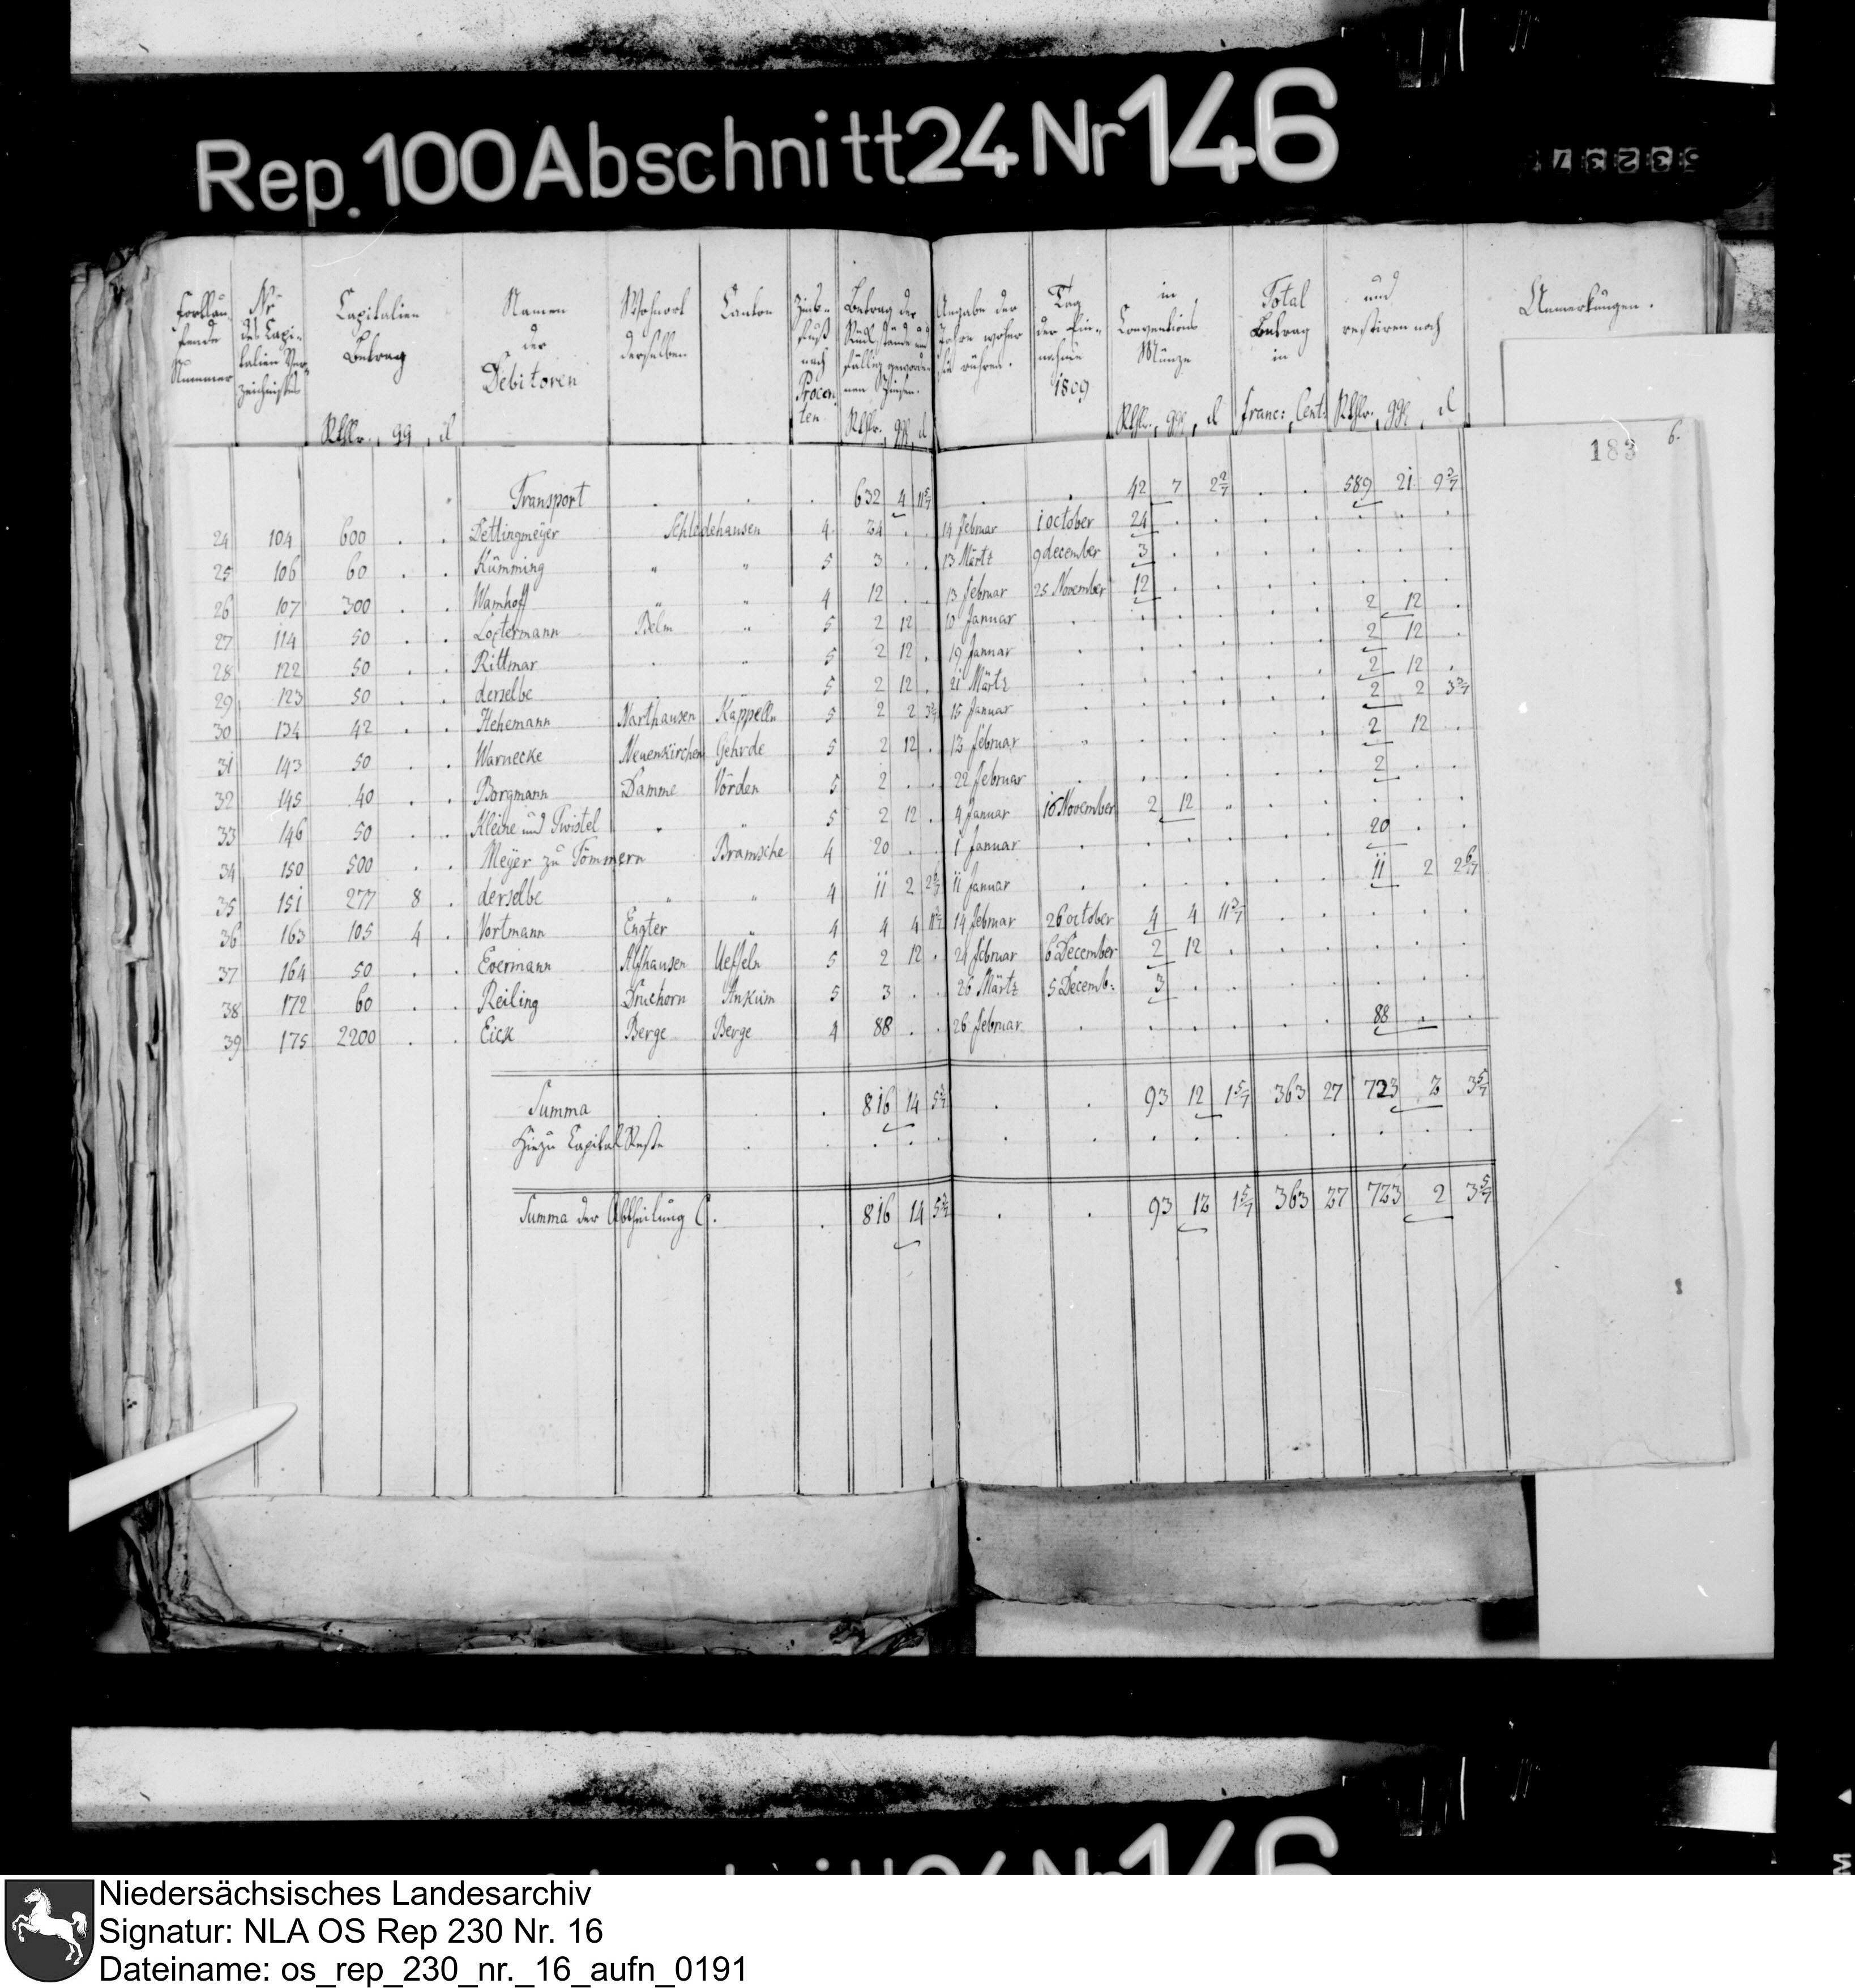 Rep. 100 Abschnitt 24 Nr 146
Fortlaufende Nummer
Nr des Capitalien Verzeichnißes
Capitalien Betrag
Rthlr. gg. d
Namen der Debitoren
Wohnort derselben
Canton
Zinsfuß nach Procenten
Betrag der Rückstände und fällig gewordenen Zinsen.
Rthlr. ggr. d
Angabe der Jahre woher sie rühren.
Tag der Einnahme 1809
in Conventions Münze
Rthlr. ggr. d
Total Betrag in
franc: Cent:
und restiren noch
Rthlr. ggr. d
Anmerkungen.
183 6.
Transport . . . 632 4 11 5/7 . . 42 7 2 2/7 . . 589 21 9 3/7
24 104 600 . . Dettlingmeÿer Schledehausen 4 24 . . 14 februar 1 october 24 . . . . . . .
25 106 60 . . Kümming " " 5 3 . . 13 Märtz 9 december 3 . . . . . . .
26 107 300 . . Wamhoff " " 4 12 . . 13 februar 25 November 12 . . . . . . .
27 114 50 . . Loctermann Belm " 5 2 12 . 10 Januar . . . . . . 2 12 .
28 122 50 . . Rittmar . " 5 2 12 . 19 Januar . . . . . . 2 12 .
29 123 50 . . derselbe 5 2 12 . 21 Märtz . . . . . . 2 12 .
30 134 42 . . Hehemann Narthausen Kappelln 5 2 2 3 3/7 15 Januar . . . . . . 2 2 3 3/7
31 143 50 . . Warnecke Neuenkirchen Gehrde 5 2 12 . 13 februar " . . . . . 2 12 .
32 145 40 . . Borgmann Damme Vörden 5 2 . . 22 februar . . . . . . 2 . .
33 146 50 . . Kleine und Twistel " " 5 2 12 . 4 Januar 16 November 2 12 " . . . . .
34 150 500 . . Meÿer zu Tömmern Bramsche 4 20 . . 1 Januar . . . . . . 20 . .
35 151 277 8 . derselbe " " 4 11 2 2 6/7 11 Januar . . . . . . 11 2 2 6/7
36 163 105 4 . Vortmann Engter " 4 4 4 11 3/7 14 februar 26 october 4 4 11 3/7 . . . . .
37 164 50 . . Evermann Alfhausen Ueffeln 5 2 12 . 24 februar 6 December 2 12 . . . . . .
38 172 60 . . Reiling Druchorn Ankum 5 3 . . 26 Märtz 5 Decemb: 3 . . . . . . .
39 175 2200 . . Eick Berge Berge 4 88 . . 26 februar . . . . . . 88 . .
Summa . . . 816 14 5 3/7 . . 93 12 1 5/7 363 27 723 2 3 5/7
Hiezu Capital Reste . . . . . . . . . . . . . . .
Summa der Abtheilung C. . 816 14 5 3/7 . . 93 12 1 5/7 363 27 723 2 3 5/7
Niedersächsisches Landesarchiv
Signatur: NLA OS Rep 230 Nr. 16
Dateiname: os_rep_230_nr._16_aufn_0191